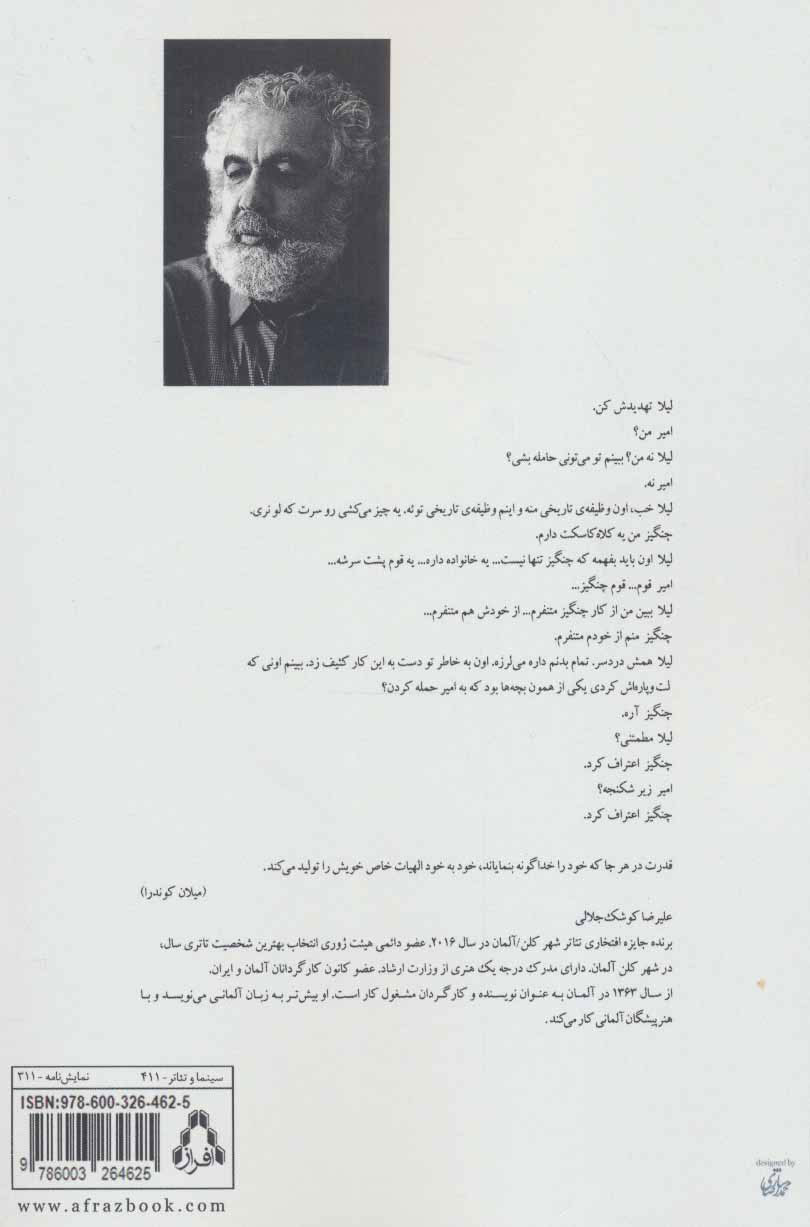 لیلا تهدیدش کن.
امیر من؟
لیلا نه من؟ ببینم تو می‌تونی حامله بشی؟
امیر نه.
لیلا خب، اون وظیفه‌ی تاریخی منه و اینم وظیفه‌ی تاریخی توئه. یه چیز می‌کشی رو سرت که لو نری.
چنگیز من یه کلاه کاسکت دارم.
لیلا اون باید بفهمه که چنگیز تنها نیست... یه خانواده داره... یه قوم پشت سرشه...
امیر قوم... قوم چنگیز...
لیلا ببین من از کار چنگیز متنفرم... از خودش هم متنفرم...
چنگیز منم از خودم متنفرم.
لیلا همش دردسر. تمام بدنم داره می‌لرزه. اون به خاطر تو دست به این کار کثیف زد. ببینم اونی که
لت‌وپاره‌اش کردی یکی از همون بچه‌ها بود که به امیر حمله کردن؟
چنگیز آره.
لیلا مطمئنی؟
چنگیز اعتراف کرد.
امیر زیر شکنجه؟
چنگیز اعتراف کرد.
قدرت در هر جا که خود را خداگونه بنمایاند، خود به خود الهیات خاص خویش را تولید می‌کند.
(میلان کوندرا)
علیرضا کوشک‌جلالی
برنده جایزه افتخاری تئاتر شهر کلن/آلمان در سال ۲۰۱۶. عضو دائمی هیئت ژوری انتخاب بهترین شخصیت تاتری سال،
در شهر کلن آلمان. دارای مدرک درجه یک هنری از وزارت ارشاد. عضو کانون کارگردانان آلمان و ایران.
از سال ۱۳۶۳ در آلمان به عنوان نویسنده و کارگردان مشغول کار است. او بیش‌تر به زبان آلمانی می‌نویسد و با
هنرپیشگان آلمانی کار می‌کند.
سینما و تئاتر - ۴۱۱ نمایش‌نامه - ۳۱۱
ISBN:978-600-326-462-5
افراز
9 786003 264625
www.afrazbook.com
designed by